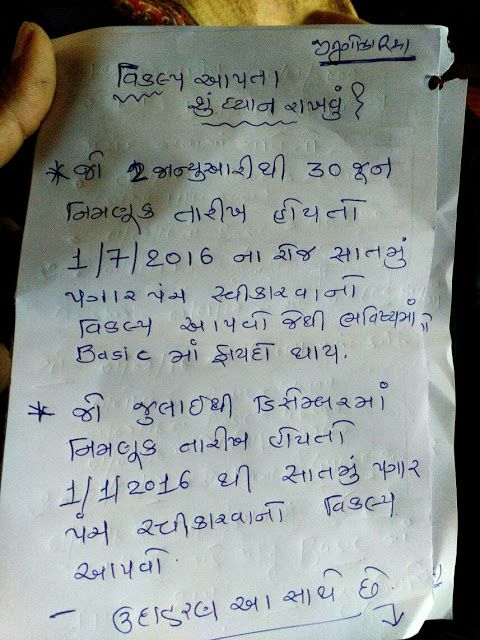 જીતુ ગોઝારીઆ
વિકલ્પ આપતા
શું ધ્યાન રાખવું ?
* જો 2 જાન્યુઆરીથી 30 જૂન
નિમણૂક તારીખ હોયતો
1/7/2016 ના રોજ સાતમું
પગાર પંચ સ્વીકારવાનો
વિકલ્પ આપવો જેથી ભવિષ્યમાં
Basic માં ફાયદો થાય.
* જો જુલાઈથી ડિસેમ્બરમાં
નિમણૂક તારીખ હોયતો
1/1/2016 થી સાતમું પગાર
પંચ સ્વીકારવાનો વિકલ્પ
આપવો.
– ઉદાહરણ આ સાથે છે.